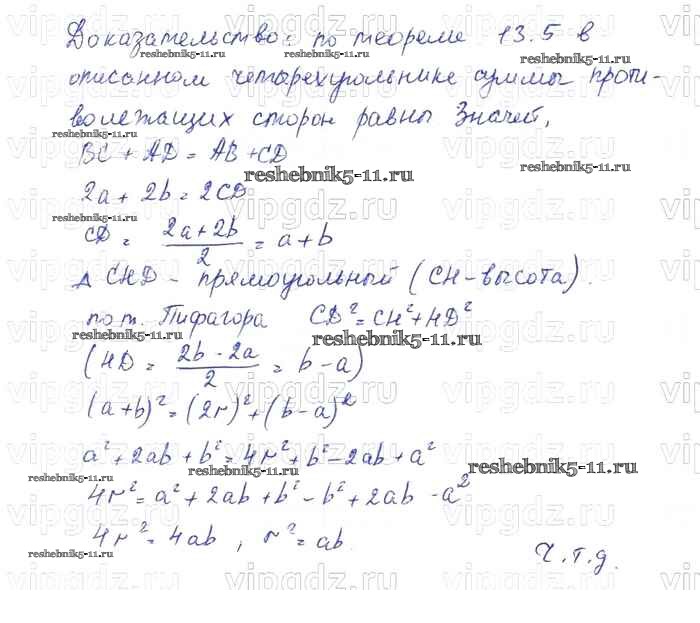 Доказательство: по теореме 13.5 в
описанном четырехугольнике суммы проти-
волежащих сторон равны Значит,
BC + AD = AB + CD
2a + 2b = 2CD
CD = (2a + 2b)/2 = a + b
Δ CHD - прямоугольный (CH - высота).
по т. Пифагора CD² = CH² + HD²
(HD = (2b - 2a)/2 = b - a)
(a+b)² = (2r)² + (b-a)²
a² + 2ab + b² = 4r² + b² - 2ab + a²
4r² = a² + 2ab + b² - b² + 2ab - a²
4r² = 4ab, r² = ab.
Ч.т.д.
vipgdz.ru
reshebnik5-11.ru